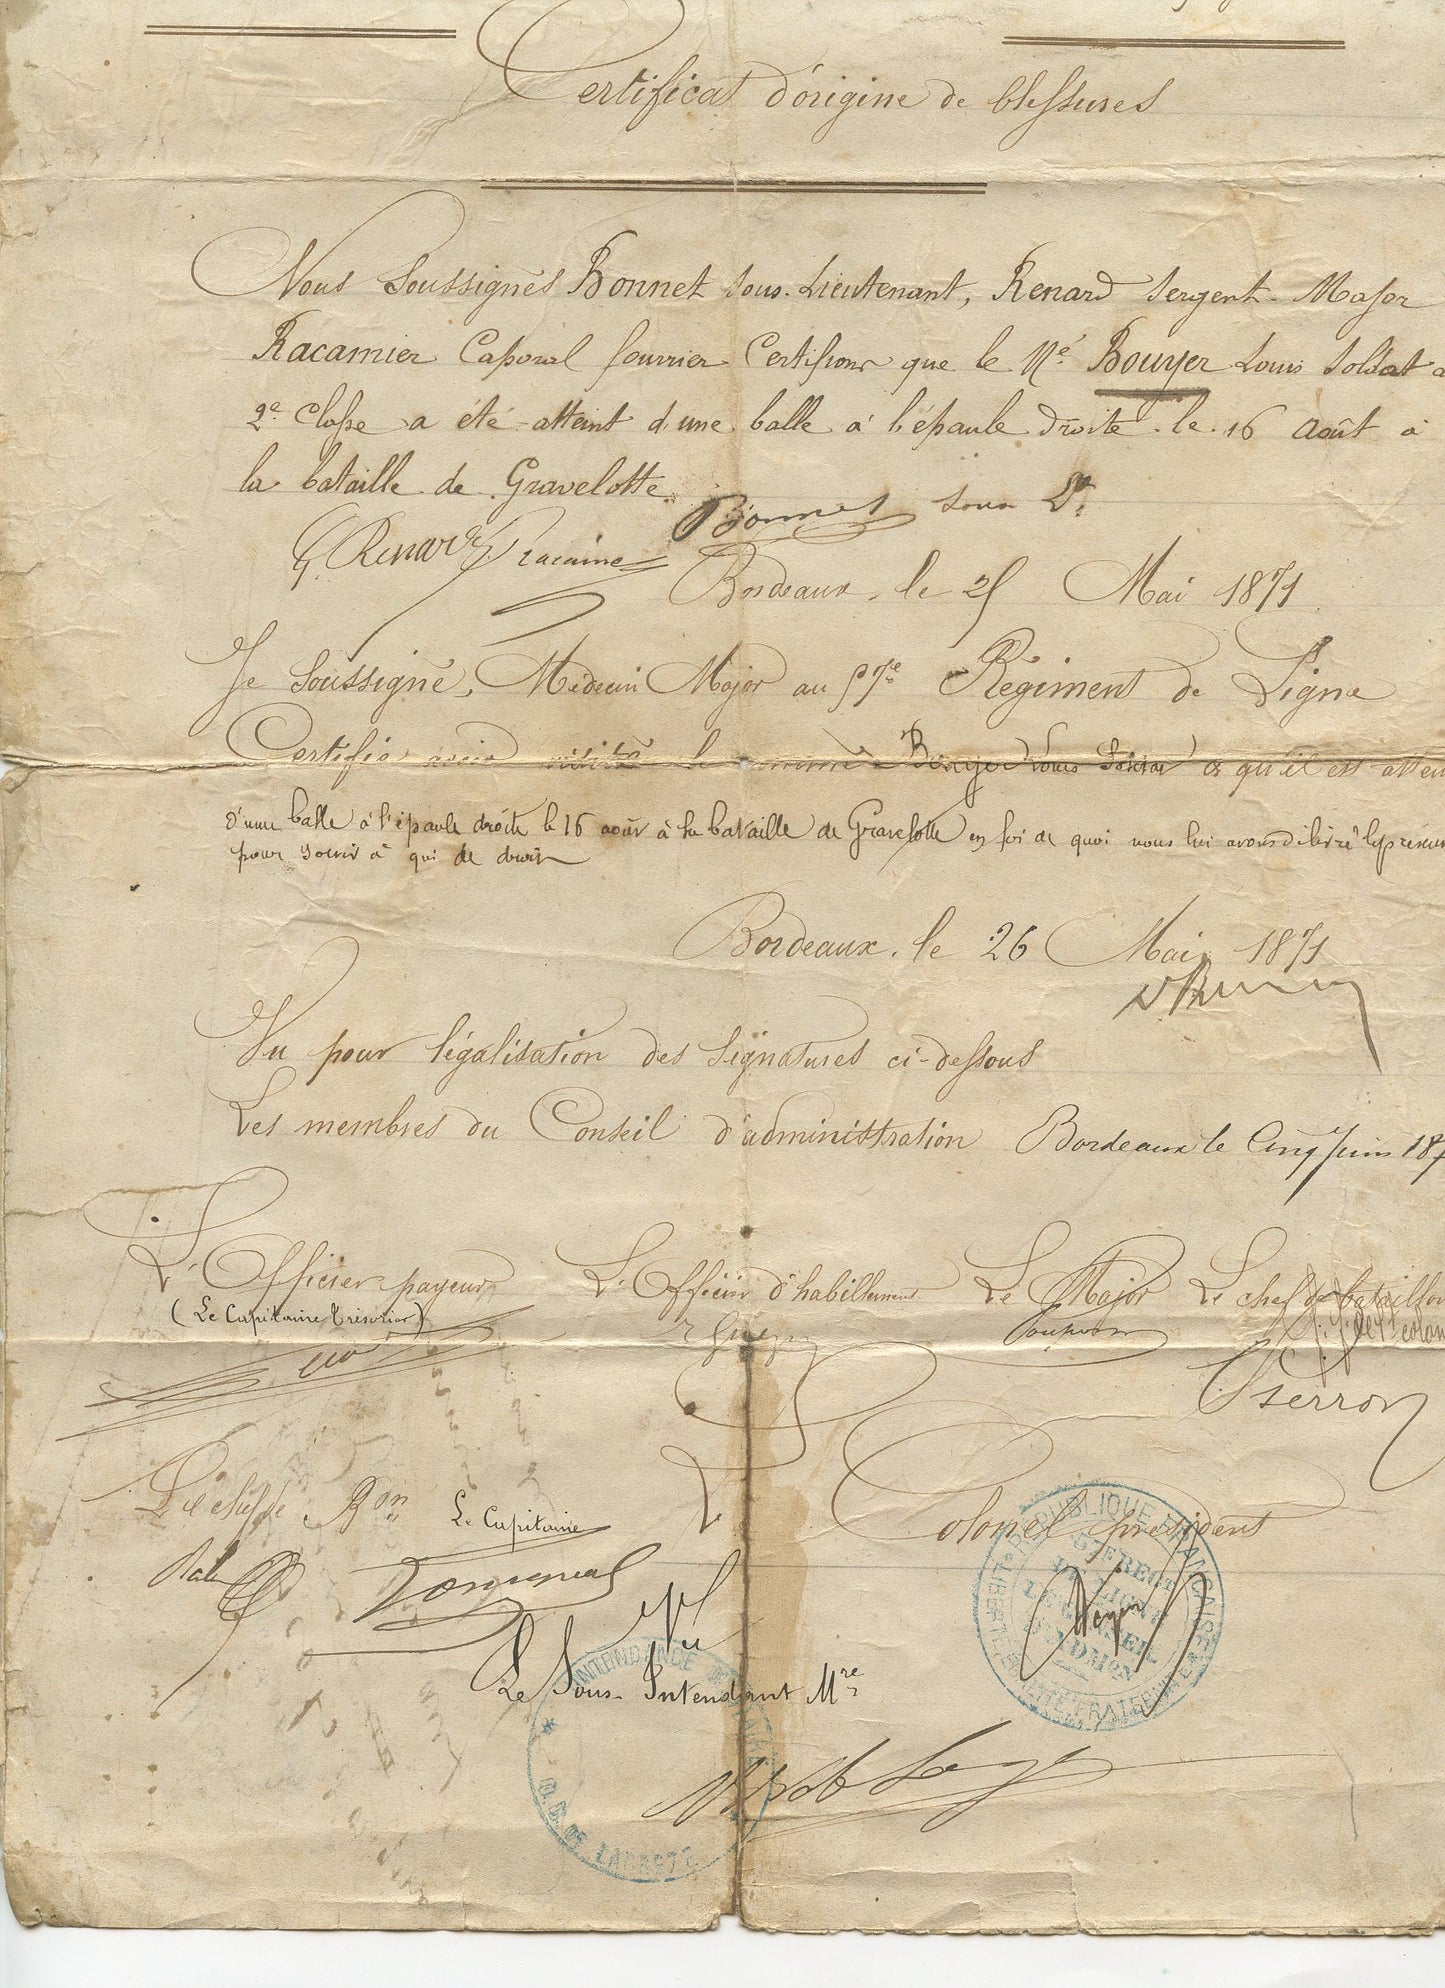 Certificat d'origine de blessures
Nous Soussignés Bonnet sous-Lieutenant, Renard Sergent-Major
Racamier Caporal fourrier Certifions que le Né Bouyer Louis Soldat
2e classe a été atteint d'une balle à l'épaule droite le 16 Août à
la bataille de Gravelotte
Bonnet sous Lt
G. Renard Racamier
Bordeaux, le 25 Mai 1871
Je Soussigné, Médecin Major au 57e Régiment de Ligne
Certifie avoir visité le nommé Bouyer Louis Soldat et qu'il est atteint
d'une balle à l'épaule droite le 16 août à la bataille de Gravelotte en foi de quoi nous lui avons délivré le présent
pour servir à qui de droit
Bordeaux, le 26 Mai 1871
Vu pour légalisation des Signatures ci-dessous
Les membres du Conseil d'administration Bordeaux le Cinq Juin 187
L'Officier payeur L'Officier d'habillement Le Major Le chef de bataillon
(Le Capitaine trésorier)
Perron
Le chef de Bon Le Capitaine
Le Colonel président
RÉPUBLIQUE FRANÇAISE
LIBERTÉ ÉGALITÉ FRATERNITÉ
57E REGT
DE LIGNE
LE CONSEIL
D'ADMION
Vu
Le Sous-Intendant Mre
INTENDANCE MILITAIRE